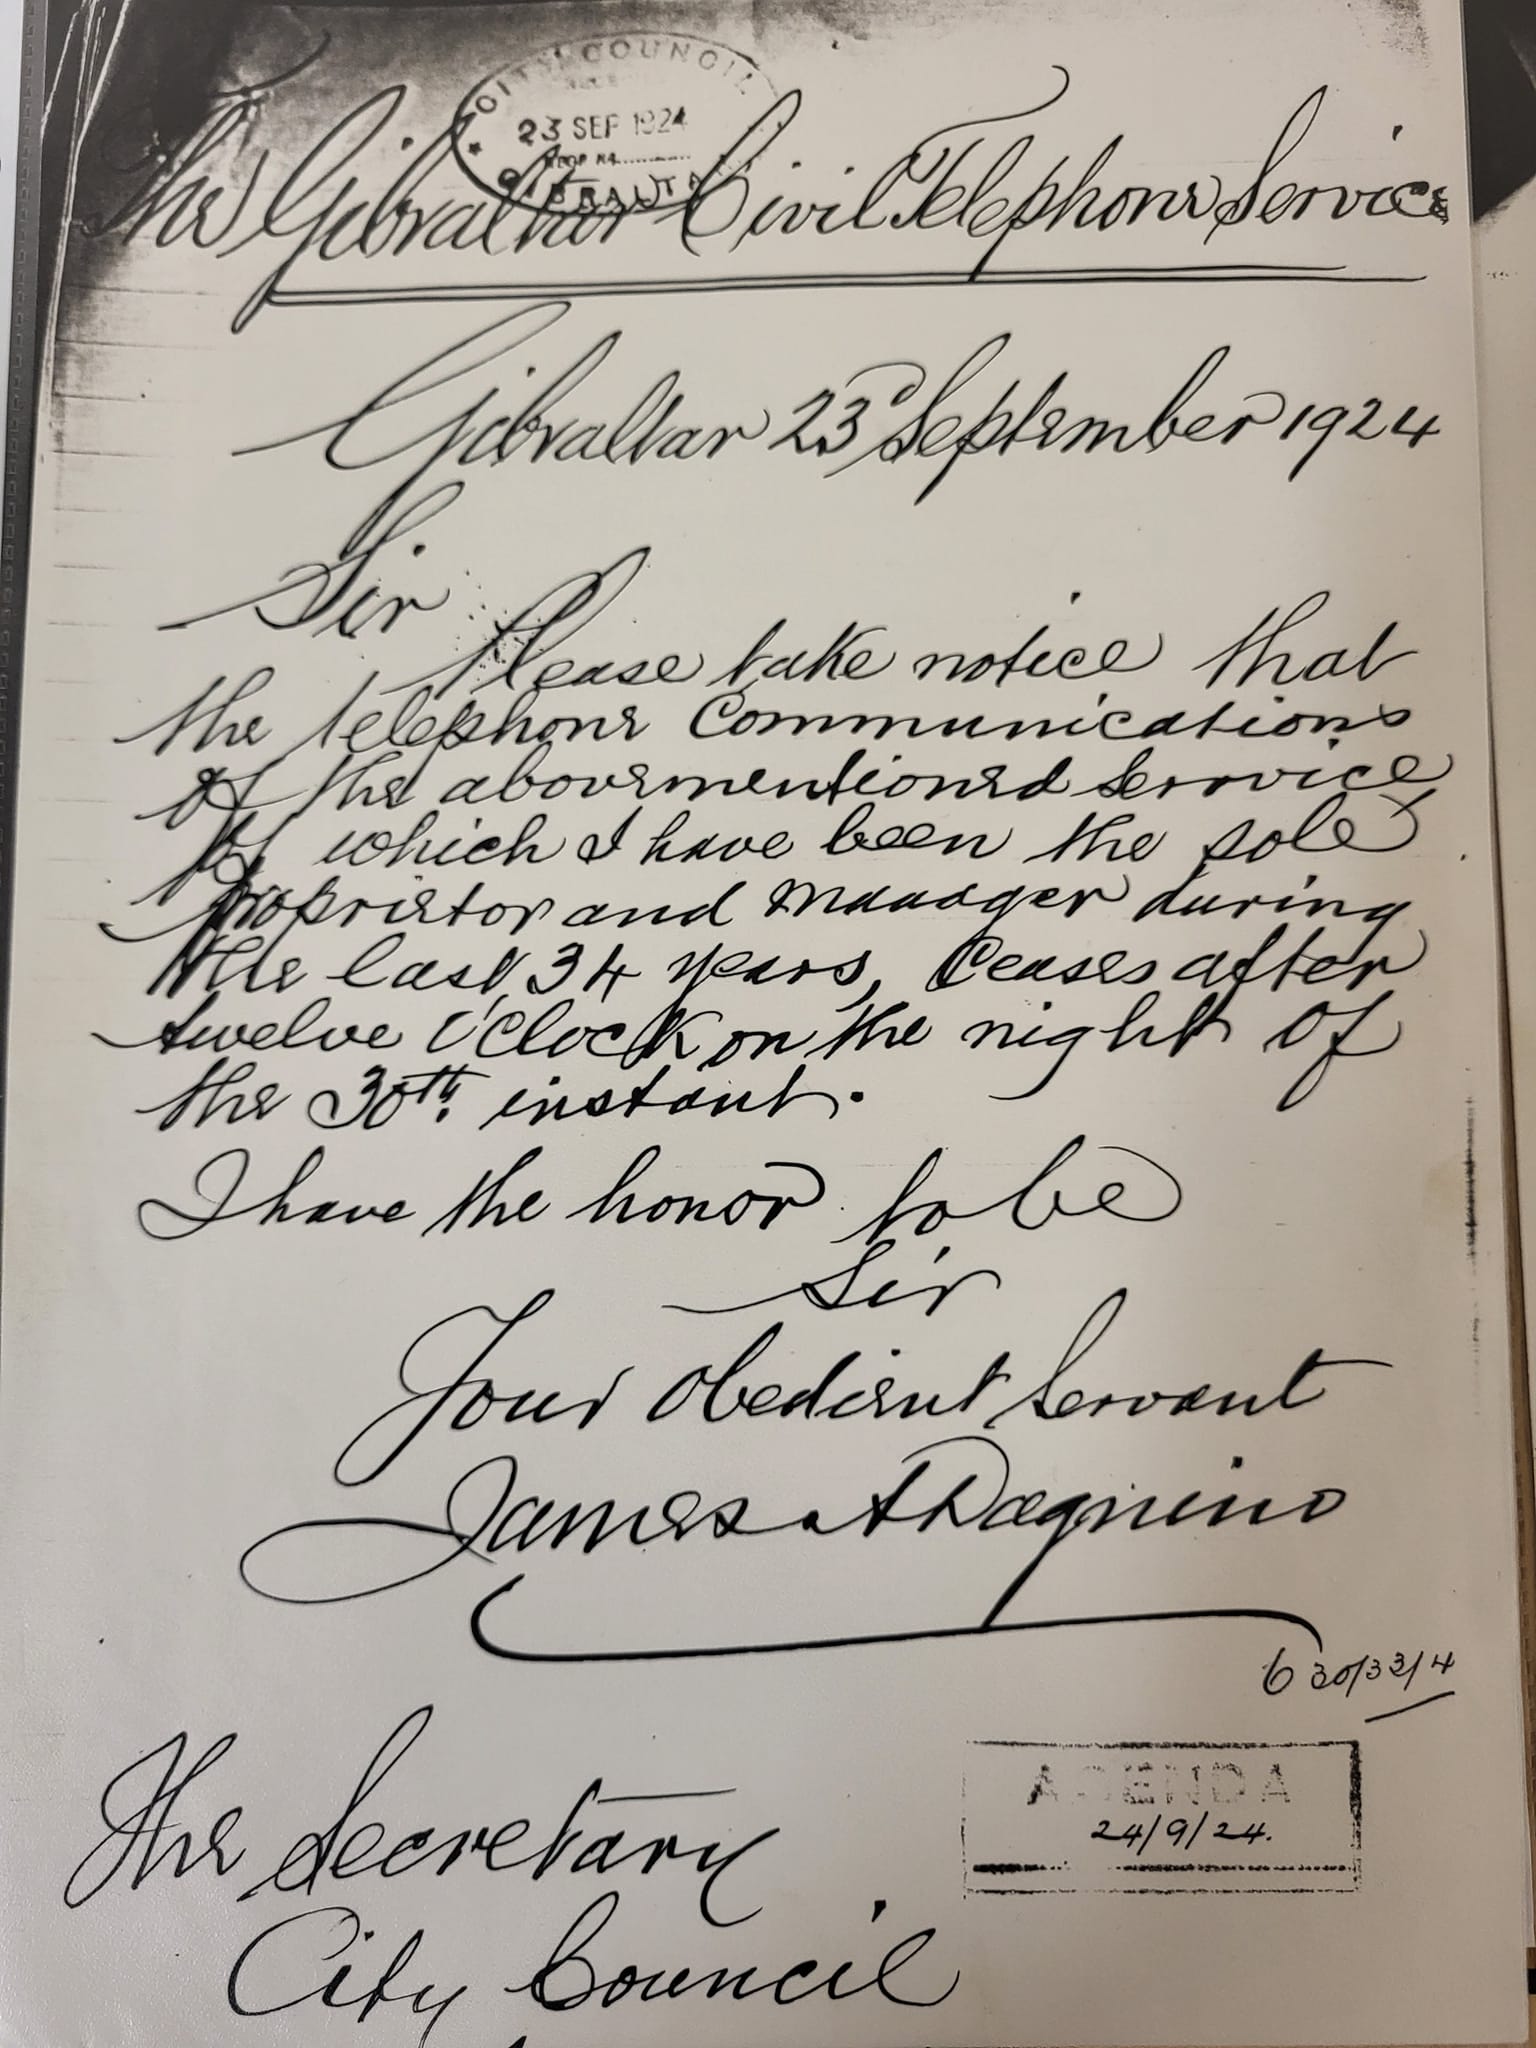 CITY COUNCIL
23 SEP 1924
GIBRALTA
The Gibraltar Civil Telephone Service
Gibraltar 23d September 1924
Sir
Please take notice that
the telephone communications
of the abovementioned service
of which I have been the sole
proprietor and manager during
the last 34 years, ceases after
twelve O'Clock on the night of
the 30th. instant.
I have the honor to be
Sir
Your Obedient Servant
James A Dagnino
630/33/4
The Secretary
AGENDA
24/9/24.
City Council